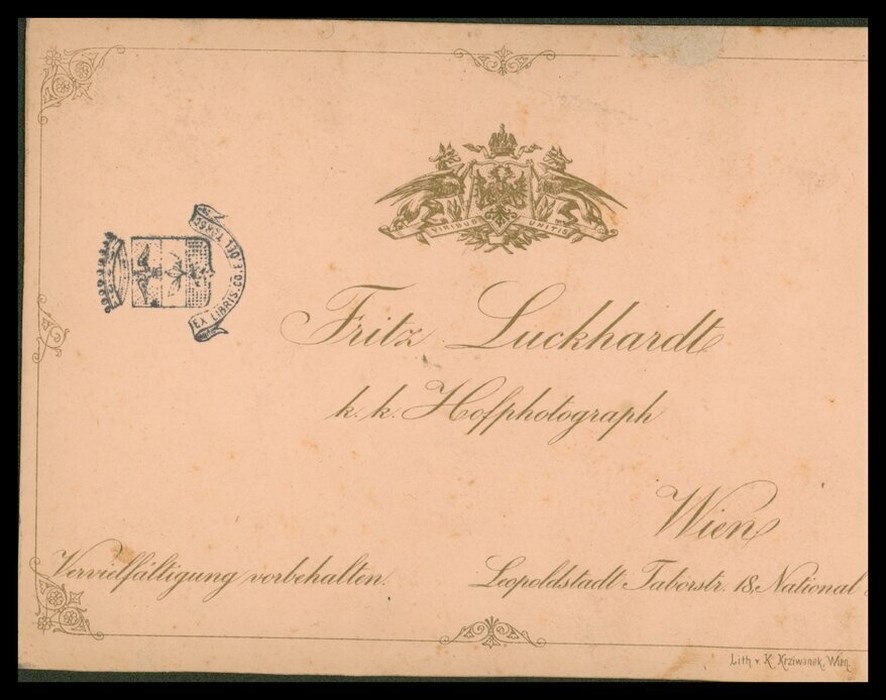 VIRIBUS UNITIS
EX LIBRIS. CO. E. DEL
Fritz Luckhardt
k. k. Hofphotograph
Wien
Vervielfältigung vorbehalten.
Leopoldstadt Taborstr. 18. National
Lith v. K. Krziwanek, Wien